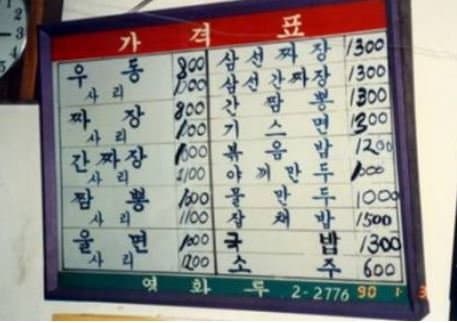 가격표
우동 800
사리 1000
짜장 800
사리 1000
간짜장 1000
사리 1100
짬뽕 1000
사리 1100
울면 1000
사리 1200
삼선짜장 1300
삼선간짜장 1300
간짬뽕 1300
기스면 1300
볶음밥 1200
야끼만두 1000
물만두 1000
잡채밥 1500
국밥 1300
소주 600
영화루 2-2776
90 1